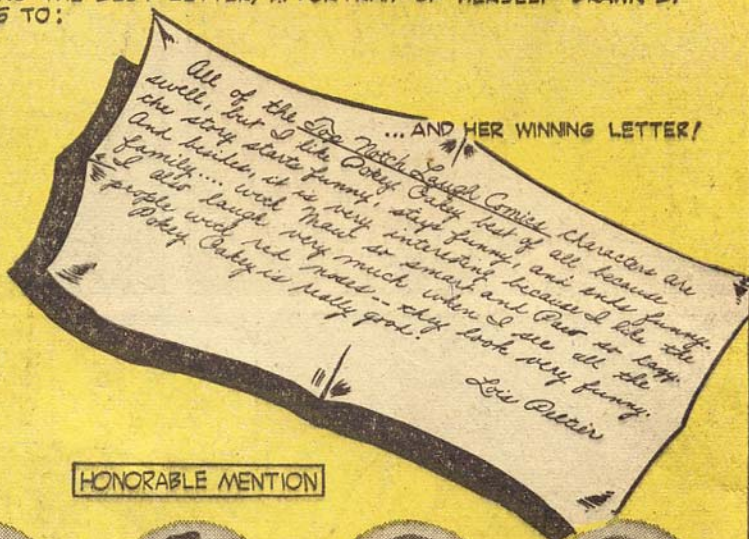 THE BEST LETTER, A PORTRAIT OF HERSELF DRAWN
TO:
... AND HER WINNING LETTER!
All of the Top Notch Laugh Comics characters are
swell, but I like Pokey Oakey best of all because
the story starts funny, stays funny, and ends funny.
And besides, it is very interesting because I like the
family.... with Maw so smart and Paw so lazy.
I also laugh very much when I see all the
people with red noses -- they look very funny.
Pokey Oakey is really good!
Lois
HONORABLE MENTION